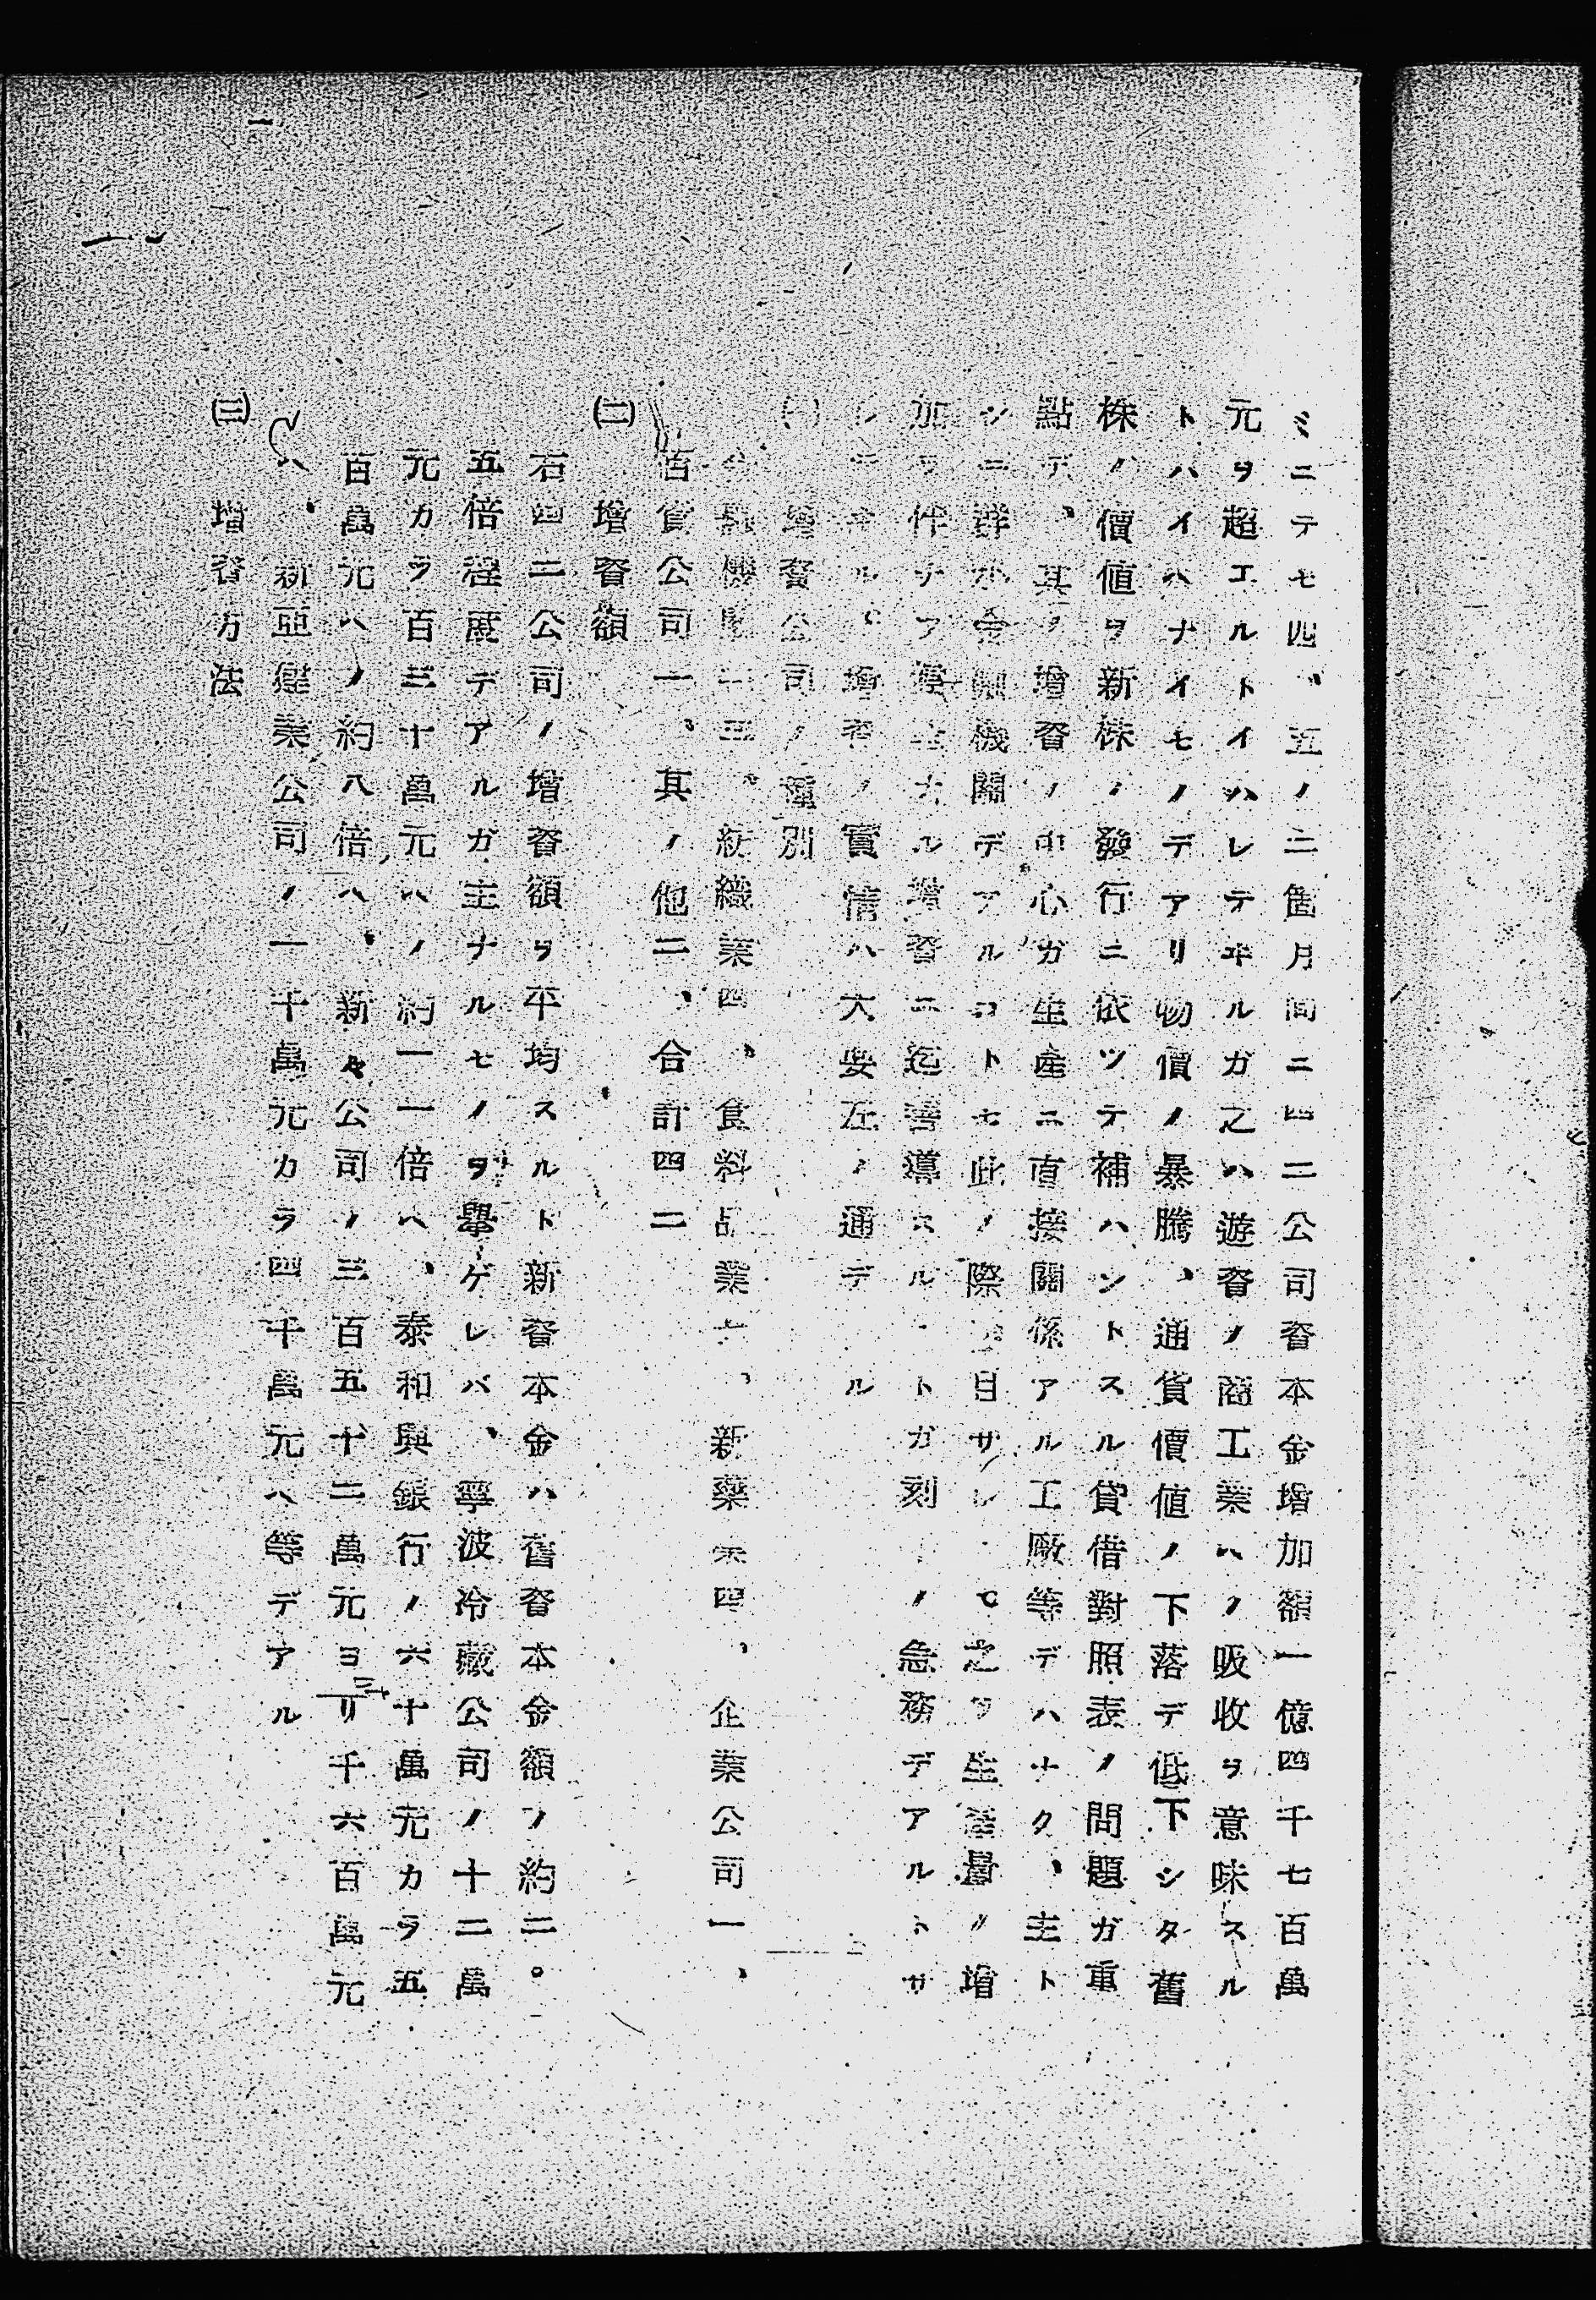 ミニテモ四、五ノ二箇月間ニ四二公司資本金增加額一億四千七百萬
元ヲ超エルトイハレテヰルガ之ハ遊資ノ商工業ヘノ吸收ヲ意味スル
トハイヘナイモノデアリ物價ノ暴騰、通貨價値ノ下落デ低下シタ舊
株ノ價値ヲ新株ノ發行ニ依ツテ補ハントスル貸借對照表ノ問題ガ重
點デ、其ノ增資ノ中心ガ生產ニ直接關係アル工廠等デハナク、主ト
シテ群小金融機關デアルコトモ此ノ際 目サレ 之ヲ生產量ノ增
加ヲ伴ナフ 大ル增資ニ迄善導スル トガ刻 ノ急務デアルトサ
レテヰル。增資ノ實情ハ大要左ノ通デ ル
(一) 增資公司ノ種別
金融機關二三、紡織業四、食料品業六、新藥業四、企業公司一、
百貨公司一、其ノ他二、合計四二
(二) 增資額
右四二公司ノ增資額ヲ平均スルト新資本金ハ舊資本金額ノ約二。
五倍程度デアルガ主ナルモノヲ擧ゲレバ、寧波冷藏公司ノ十二萬
元カラ百三十萬元ヘノ約一一倍ヘ、泰和興銀行ノ六十萬元カラ五
百萬元ヘノ約八倍ヘ、新々公司ノ三百五十二萬元ヨリ三千六百萬元
ヘ、新亞建業公司ノ一千萬元カラ四千萬元ヘ等デアル
(三) 增資方法